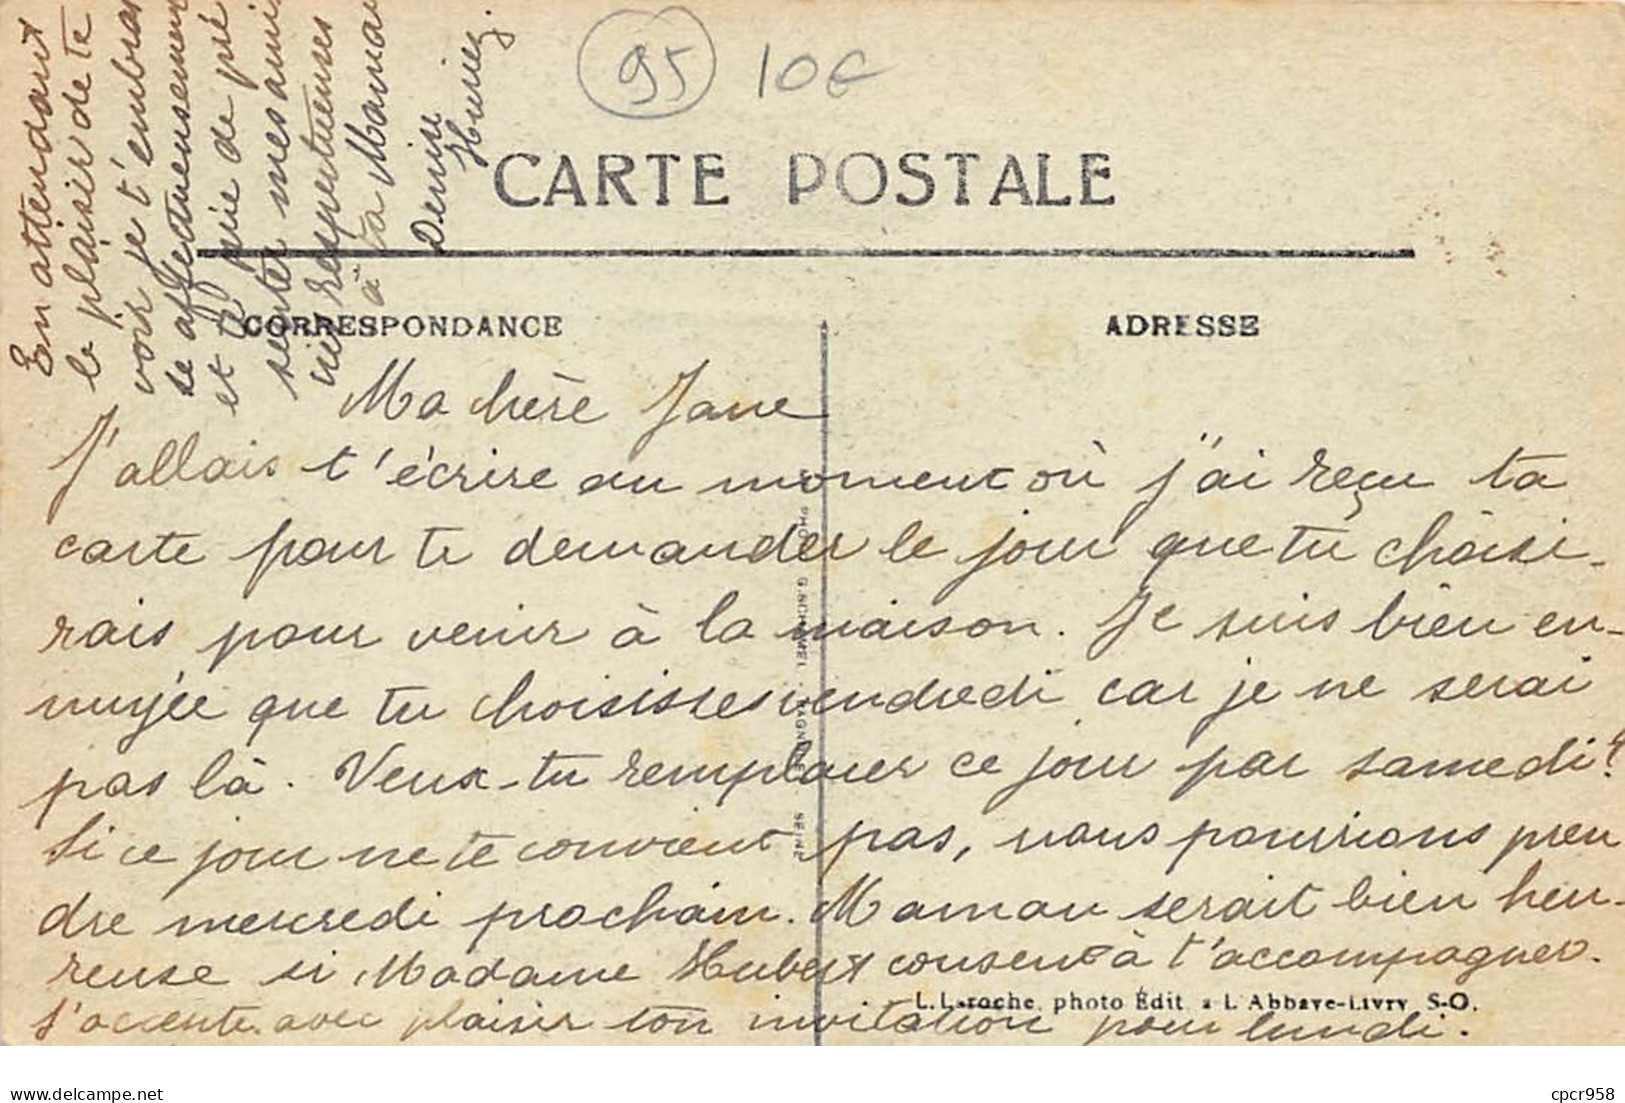 95 10€
CARTE POSTALE
CORRESPONDANCE
ADRESSE
Ma chère Jane
J'allais t'écrire au moment où j'ai reçu ta
carte pour te demander le jour que tu choisi-
rais pour venir à la maison. Je suis bien en-
nuyée que tu choisisses vendredi car je ne serai
pas là. Veux-tu remplacer ce jour par samedi?
Si ce jour ne te convient pas, nous pourrions pren
dre mercredi prochain. Maman serait bien heu-
reuse si Madame Hubert consent à t'accompagner.
J'accepte avec plaisir ton invitation pour lundi.
En attendant
le plaisir de te
voir je t'embras
se affectueusement
et te prie de pré
senter mes ami
respectueuses
à ta Maman
Denise
PHO G. SCHIMMEL SEINE
L. Laroche, photo Édit. à L'Abbaye-Livry S-O.
delcampe.net
cpcr958